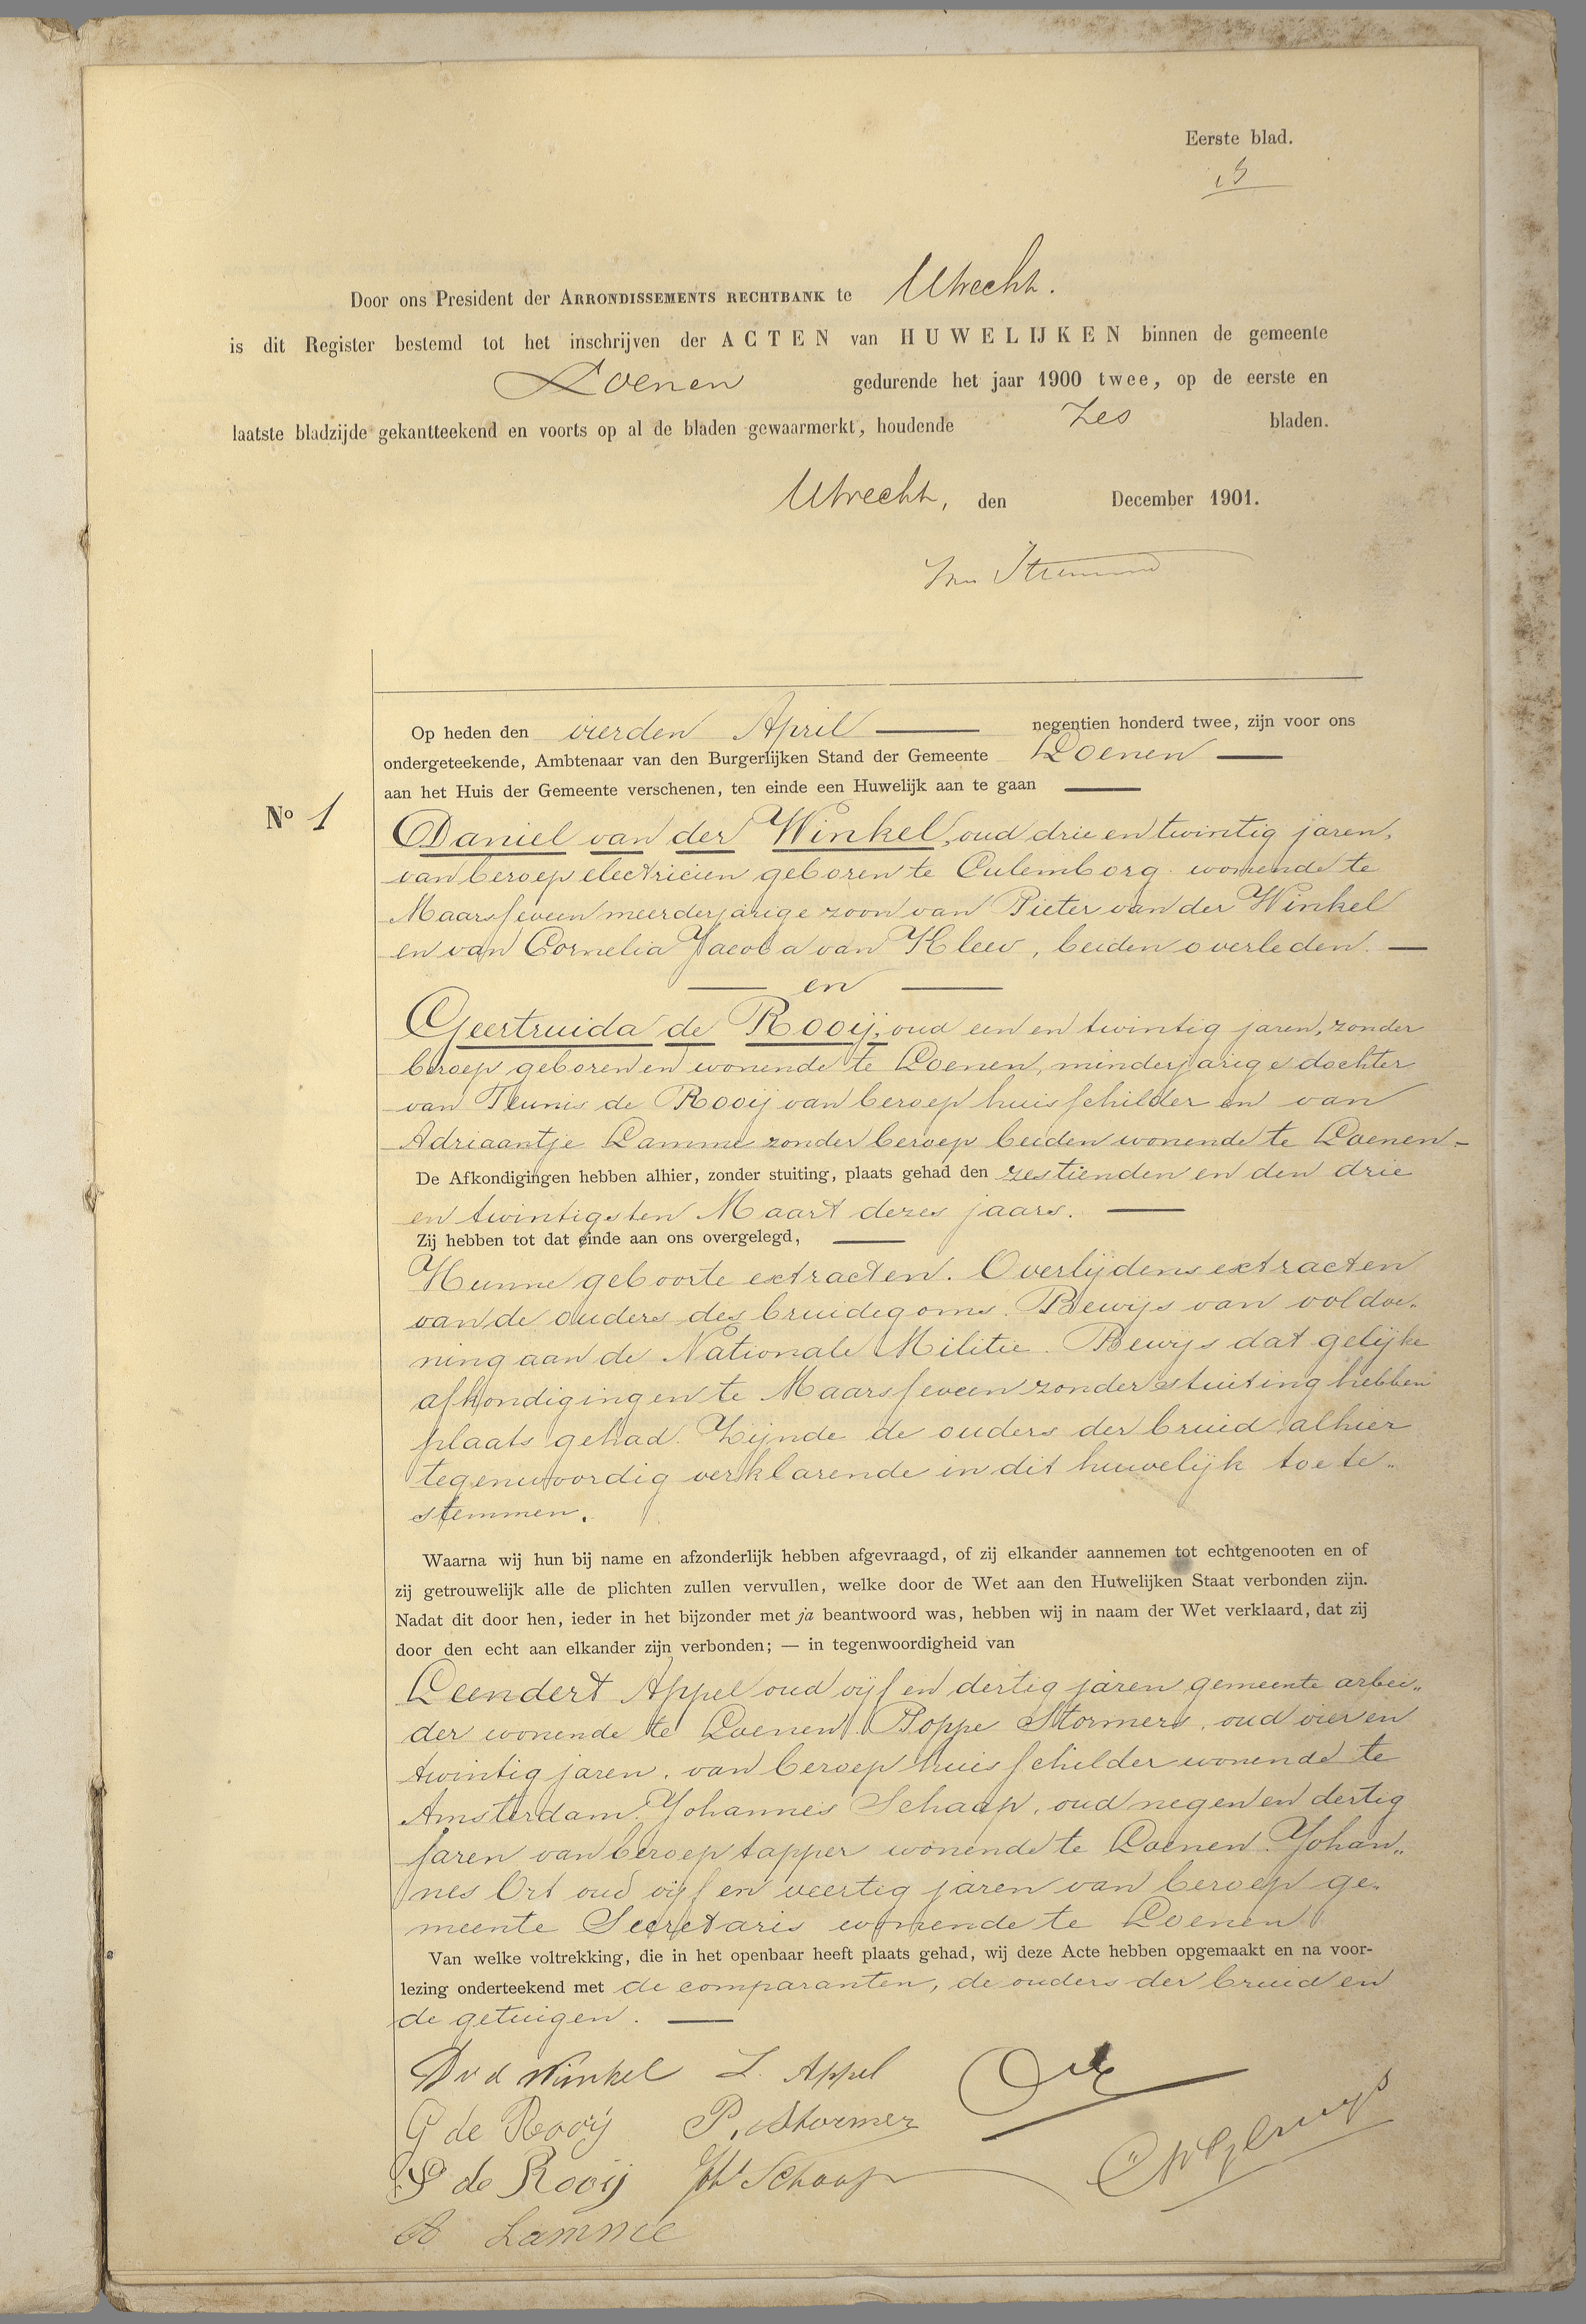 Eerste blad.
Door ons President der ARRONDISSEMENTS RECHTBANK te Utrecht.
is dit Register bestemd tot het inschrijven der ACTEN van HUWELIJKEN binnen de gemeente
Loenen gedurende het jaar 1900 twee, op de eerste en
laatste bladzijde gekantteekend en voorts op al de bladen gewaarmerkt, houdende Zes bladen.
Utrecht, den December 1901.
Op heden den vierden April negentien honderd twee, zijn voor ons
ondergeteekende, Ambtenaar van den Burgerlijken Stand der Gemeente Loenen
aan het Huis der Gemeente verschenen, ten einde een Huwelijk aan te gaan
No 1
Daniel van der Winkel, oud drie en twintig jaren,
van beroep electricien geboren te Culemborg wonende te
Maarsseveen meerderjarige zoon van Pieter van der Winkel
en van Cornelia Jacoba van Kleev, beiden overleden. —
— en —
Geertruida de Rooij, oud een en twintig jaren, zonder
beroep geboren en wonende te Loenen, minderjarige dochter
van Teunis de Rooij van beroep huisschilder en van
Adriaantje Lamme zonder beroep beiden wonende te Loenen -
De Afkondigingen hebben alhier, zonder stuiting, plaats gehad den zestienden en den drie
en twintigsten Maart dezes jaars. —
Zij hebben tot dat einde aan ons overgelegd, —
Hunne geboorte extracten. Overlijdens extracten
van de ouders des bruidegoms. Bewijs van voldoe„
ning aan de Nationale Militie. Bewijs dat gelijke
afkondigingen te Maarsseveen zonder stuiting hebben
plaats gehad. Zijnde de ouders der bruid alhier
tegenwoordig verklarende in dit huwelijk toe te„
stemmen.
Waarna wij hun bij name en afzonderlijk hebben afgevraagd, of zij elkander aannemen tot echtgenooten en of
zij getrouwelijk alle de plichten zullen vervullen, welke door de Wet aan den Huwelijken Staat verbonden zijn.
Nadat dit door hen, ieder in het bijzonder met ja beantwoord was, hebben wij in naam der Wet verklaard, dat zij
door den echt aan elkander zijn verbonden; — in tegenwoordigheid van
Leendert Appel oud vijf en dertig jaren gemeente arbei„
der wonende te Loenen. Poppe Stormers, oud vier en
twintig jaren, van beroep huisschilder wonende te
Amsterdam. Johannes Schaap, oud negen en dertig
jaren van beroep tapper wonende te Loenen. Johan„
nes Ort oud vijf en veertig jaren van beroep ge„
meente Secretaris wonende te Loenen
Van welke voltrekking, die in het openbaar heeft plaats gehad, wij deze Acte hebben opgemaakt en na voor-
lezing onderteekend met de comparanten, de ouders der bruid en
de getuigen. —
D v d Winkel L. Appel
G de Rooij P. Stormer
de Rooij Joh Schaap
A Lamme